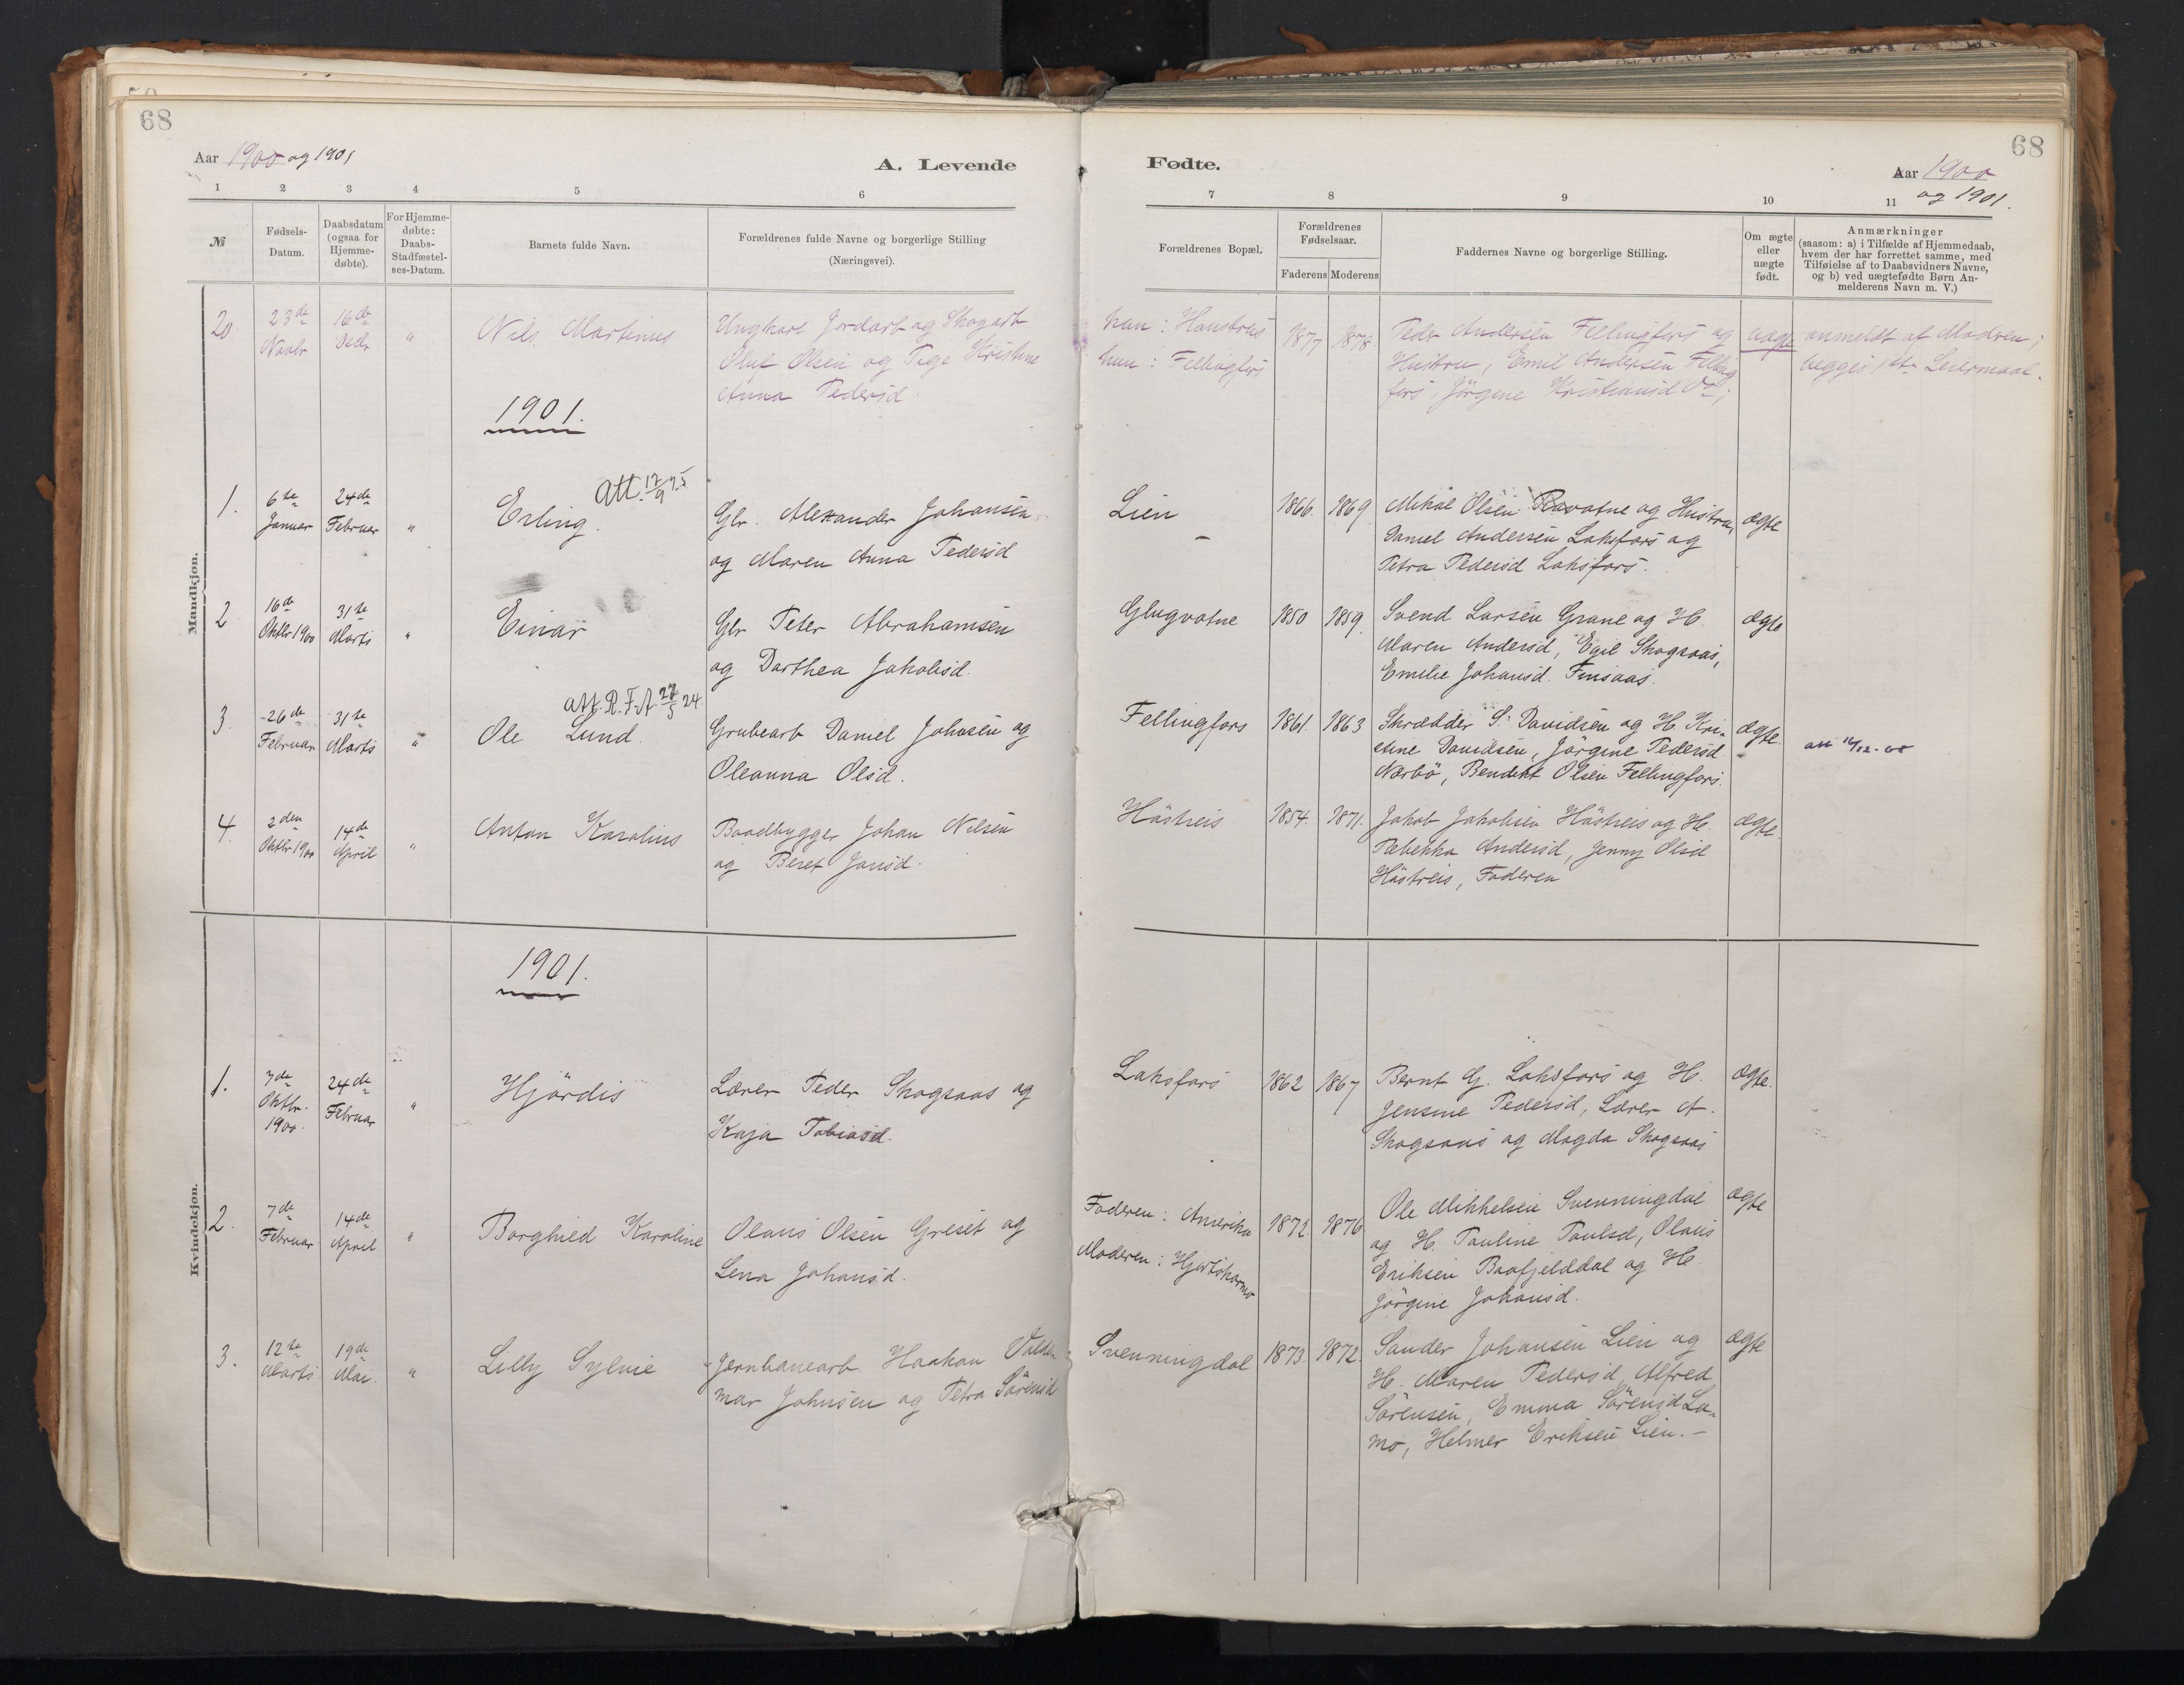 68
Aar 1900 og 1901
A. Levende
1 2 3 4 5 6
№
Fødsels-Datum.
Daabsdatum (ogsaa for Hjemme-døbte).
For Hjemme-døbte: Daabs-Stadfæstel-ses-Datum.
Barnets fulde Navn.
Forældrenes fulde Navne og borgerlige Stilling
(Næringsvei).
Mandkjøn.
20. 23de Novbr 16de Decbr " Nils Martinus
Ungkarl Jordarb og Skogarb
Oluf Olsen og Pige Kristine
Anna Pedersd.
1901.
1. 6te Januar 24de Februar " Erling.
Att. 17/9 75
Gbr. Alexander Johansen
og Maren Anna Pedersd
2 16de Oktbr 1900 31te Marts " Einar
Gbr Peter Abrahamsen
og Dorthea Jakobsd.
att. R.F.A. 27/5 24.
3. 26de Februar 31te Marts " Ole Lund.
Grubearb Daniel Johnsen og
Oleanna Olsd.
4. 2den Oktbr 1900 14de April " Anton Karolius
Baadbygger Johan Nilsen
og Beret Jonsd.
Kvindekjøn.
1901.
1. 7de Oktbr. 1900. 24de Februar " Hjördis
Lærer Peder Skogsaas og
Kaja Tobiasd.
2. 7de Februar 14de April " Borghild Karoline
Olaus Olsen Greset og
Lena Johansd.
3. 12te Marts 19de Mai. " Lilly Sylvie
Jernbanearb. Haakon Valde-
mar Johnsen og Petra Sörensd
68
Fødte.
Aar 1900
og 1901.
7 8 9 10 11
Forældrenes Bopæl.
Forældrenes Fødselsaar.
Faderens Moderens
Faddernes Navne og borgerlige Stilling.
Om ægte eller uægte født.
Anmærkninger
(saasom: a) i Tilfælde af Hjemmedaab,
hvem der har forrettet samme, med
Tilføielse af to Daabsvidners Navne,
og b) ved uægtefødte Børn An-
melderens Navn m. V.)
han:
hun: Fellingfors
1877 1878
Peder Andersen Fellingfors og
Hustru, Emil Andersen Felling
fors, Jörgine Kristiansd Do;
uægte
anmeldt af Modren;
begges 1ste Leiermaal.
Lien
–
1866. 1869.
Mikal Olsen Ravatne og Hustru,
Daniel Andersen Laksfors og
Petra Pedersd Laksfors.
ægte
Glugvatne 1850 1859.
Svend Larsen Grane og H.
Maren Andersd, Egil Skogsaas,
Emilie Johansd. Finsaas.
ægte
Fellingfors 1861. 1863
Skrædder S. Davidsen og H. Kri-
stine Davidsen, Jörgine Pedersd.
Nærbö, Bendikt Olsen Fellingfors.
ægte.
Håstreis 1854. 1871.
Jakob Jakobsen Håstreis og H.
Rebekka Andersd, Jenny Olsd
Håstreis, Faderen
ægte.
Laksfors 1862 1867
Bernt G. Laksfors og H.
Jensine Pedersd, Lærer A.
Skogsaas og Magda Skogsaas
ægte.
Faderen: Amerika
Moderen:
1872. 1876
Ole Mikkelsen Svenningdal
og H. Pauline Paulsd, Olaus
Eriksen Baafjelddal og H.
Jörgine Johansd.
ægte
Svenningdal 1873. 1872.
Sander Johansen Lien og
H. Maren Pedersd, Alfred
Sörensen, Emma Sörensd La-
mo, Helmer Eriksen Lien. –
ægte